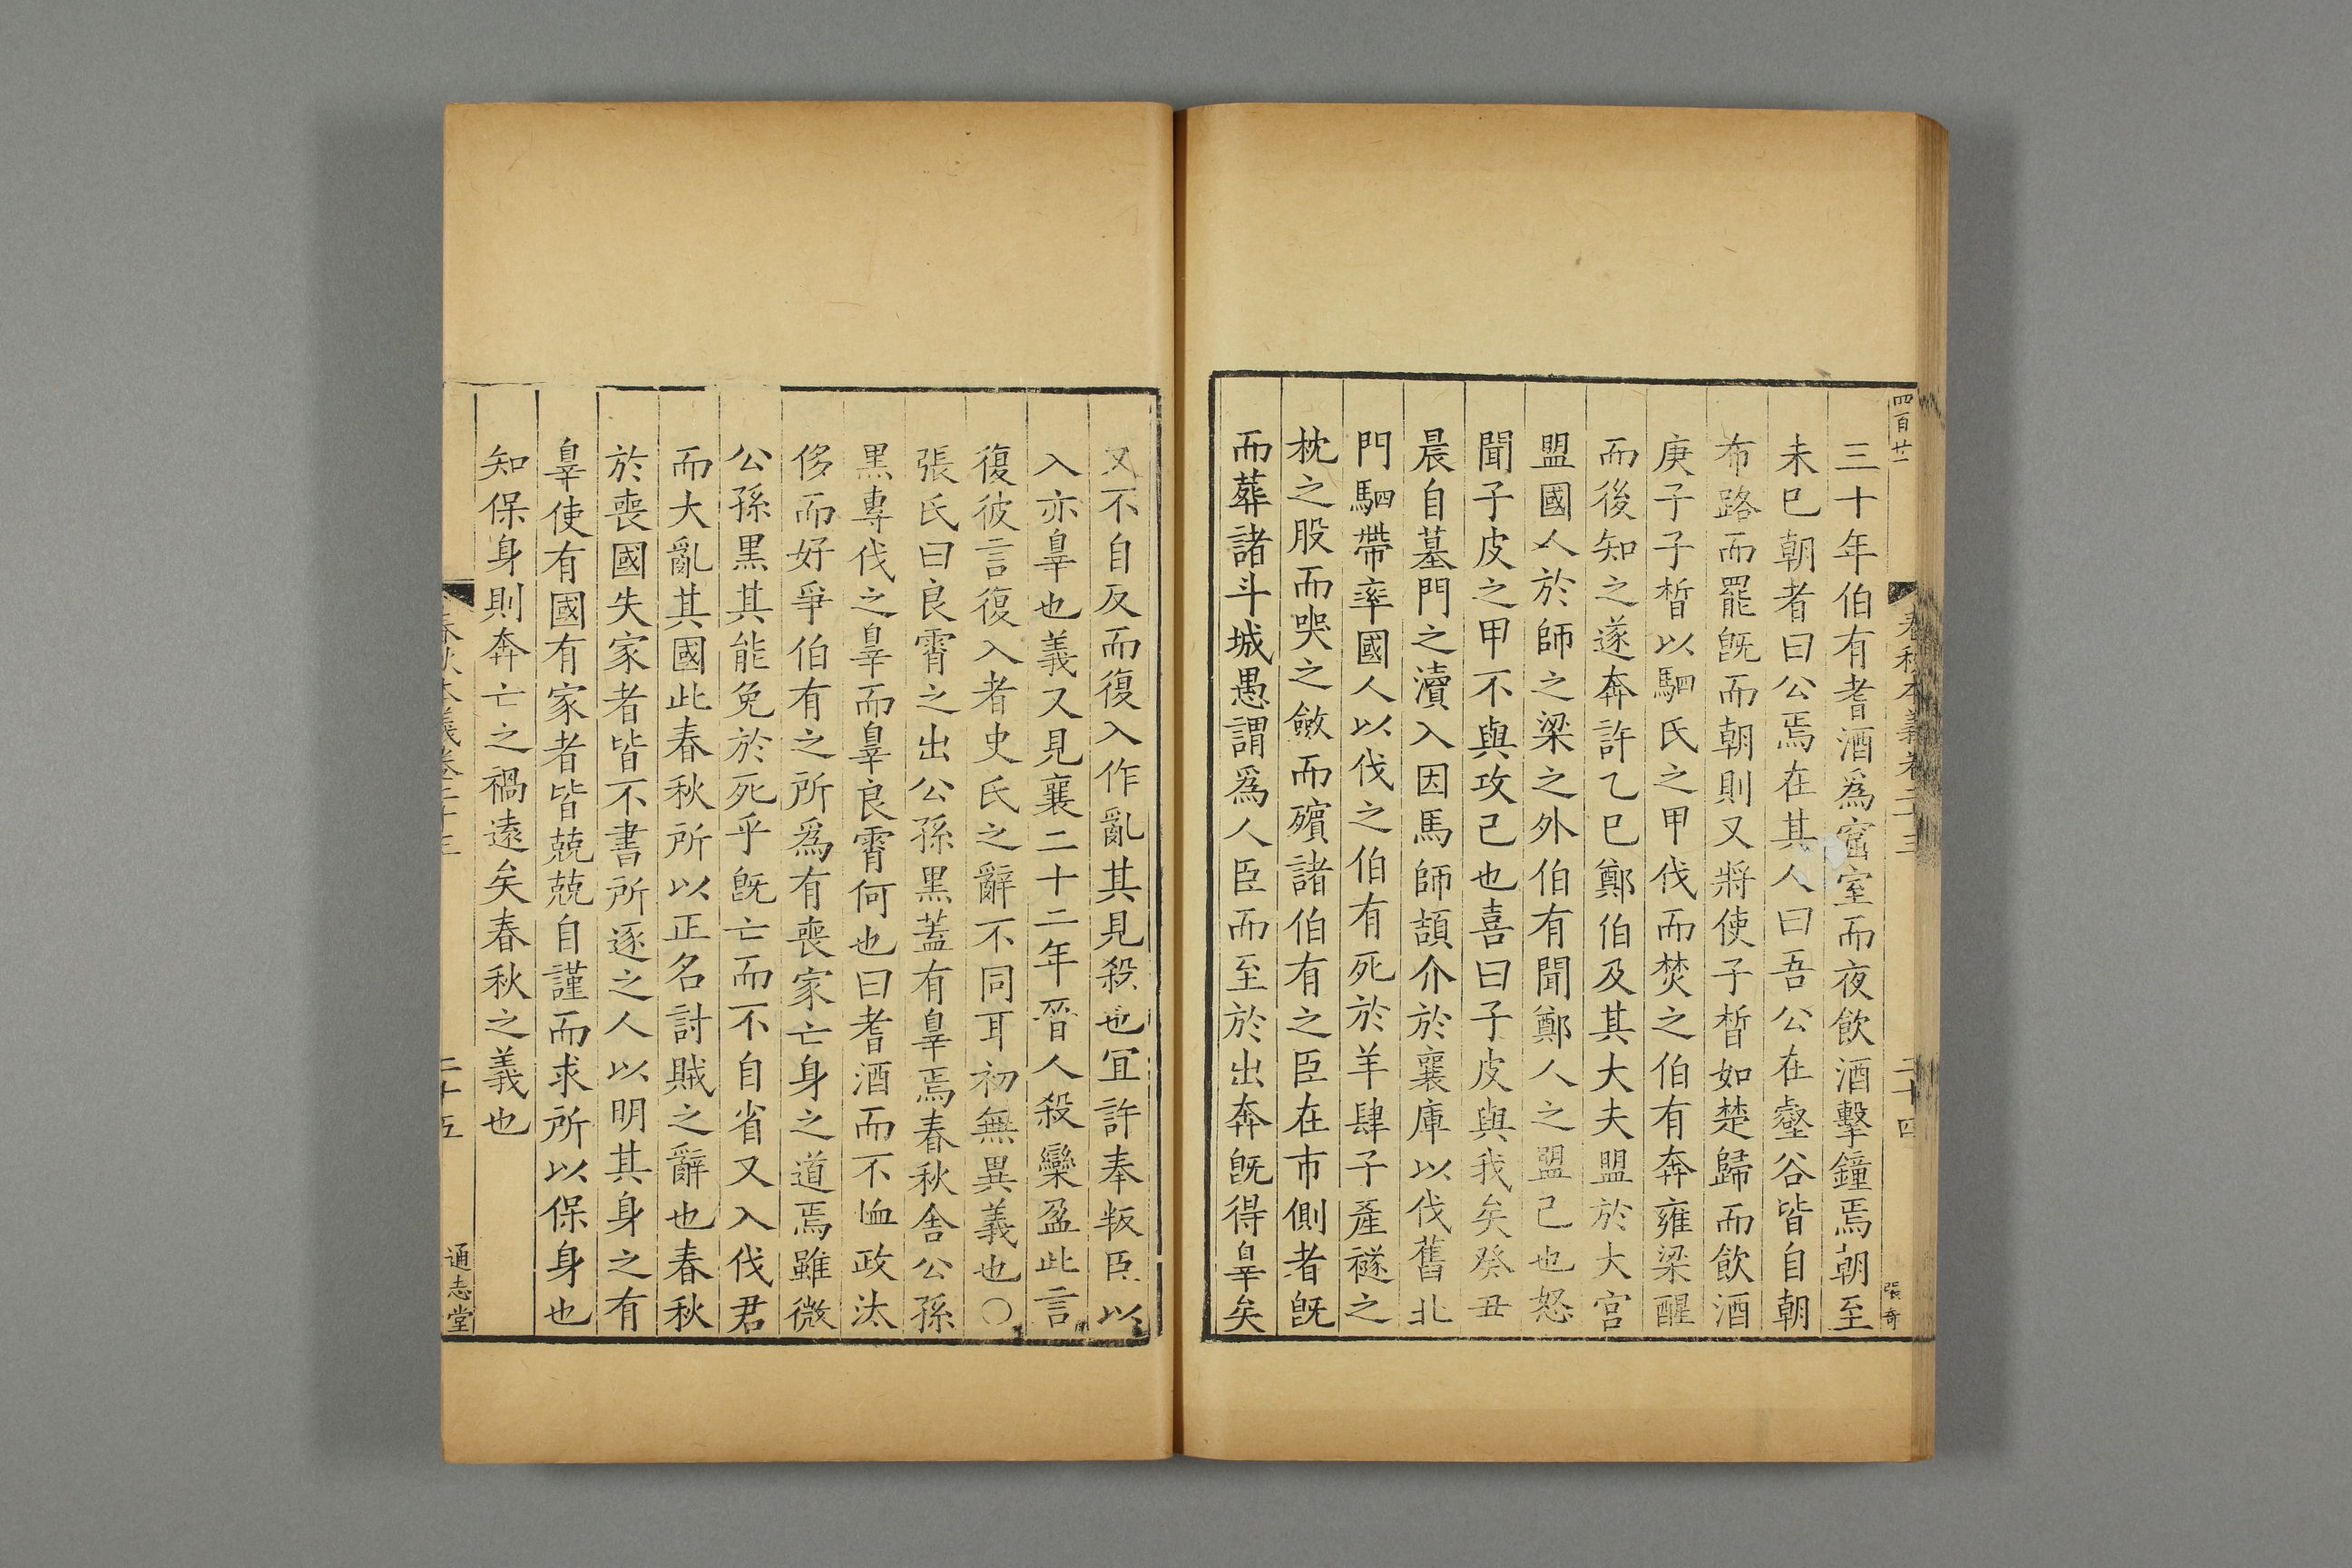 四百廿一
春秋本義卷二十三
二十四
張奇
三十年伯有耆酒爲窟室而夜飲酒擊鐘焉朝至
未巳朝者曰公焉在其人曰吾公在壑谷皆自朝
布路而罷旣而朝則又將使子晳如楚歸而飲酒
庚子子晳以駟氏之甲伐而焚之伯有奔雍梁醒
而後知之遂奔許乙巳鄭伯及其大夫盟於大宮
盟國人於師之梁之外伯有聞鄭人之盟己也怒
聞子皮之甲不與攻己也喜曰子皮與我矣癸丑
晨自墓門之瀆入因馬師頡介於襄庫以伐舊北
門駟帶率國人以伐之伯有死於羊肆子產襚之
枕之股而哭之斂而殯諸伯有之臣在市側者旣
而葬諸斗城愚謂爲人臣而至於出奔旣得辠矣
又不自反而復入作亂其見殺也宜許奉叛臣以
入亦辠也義又見襄二十二年晉人殺欒盈此言
復彼言復入者史氏之辭不同耳初無異義也○
張氏曰良霄之出公孫黑蓋有辠焉春秋舍公孫
黑專伐之辠而辠良霄何也曰耆酒而不恤政汰
侈而好爭伯有之所爲有喪家亡身之道焉雖微
公孫黑其能免於死乎旣亡而不自省又入伐君
而大亂其國此春秋所以正名討賊之辭也春秋
於喪國失家者皆不書所逐之人以明其身之有
辠使有國有家者皆兢兢自謹而求所以保身也
知保身則奔亡之禍遠矣春秋之義也
春秋本義卷二十三
二十五
通志堂